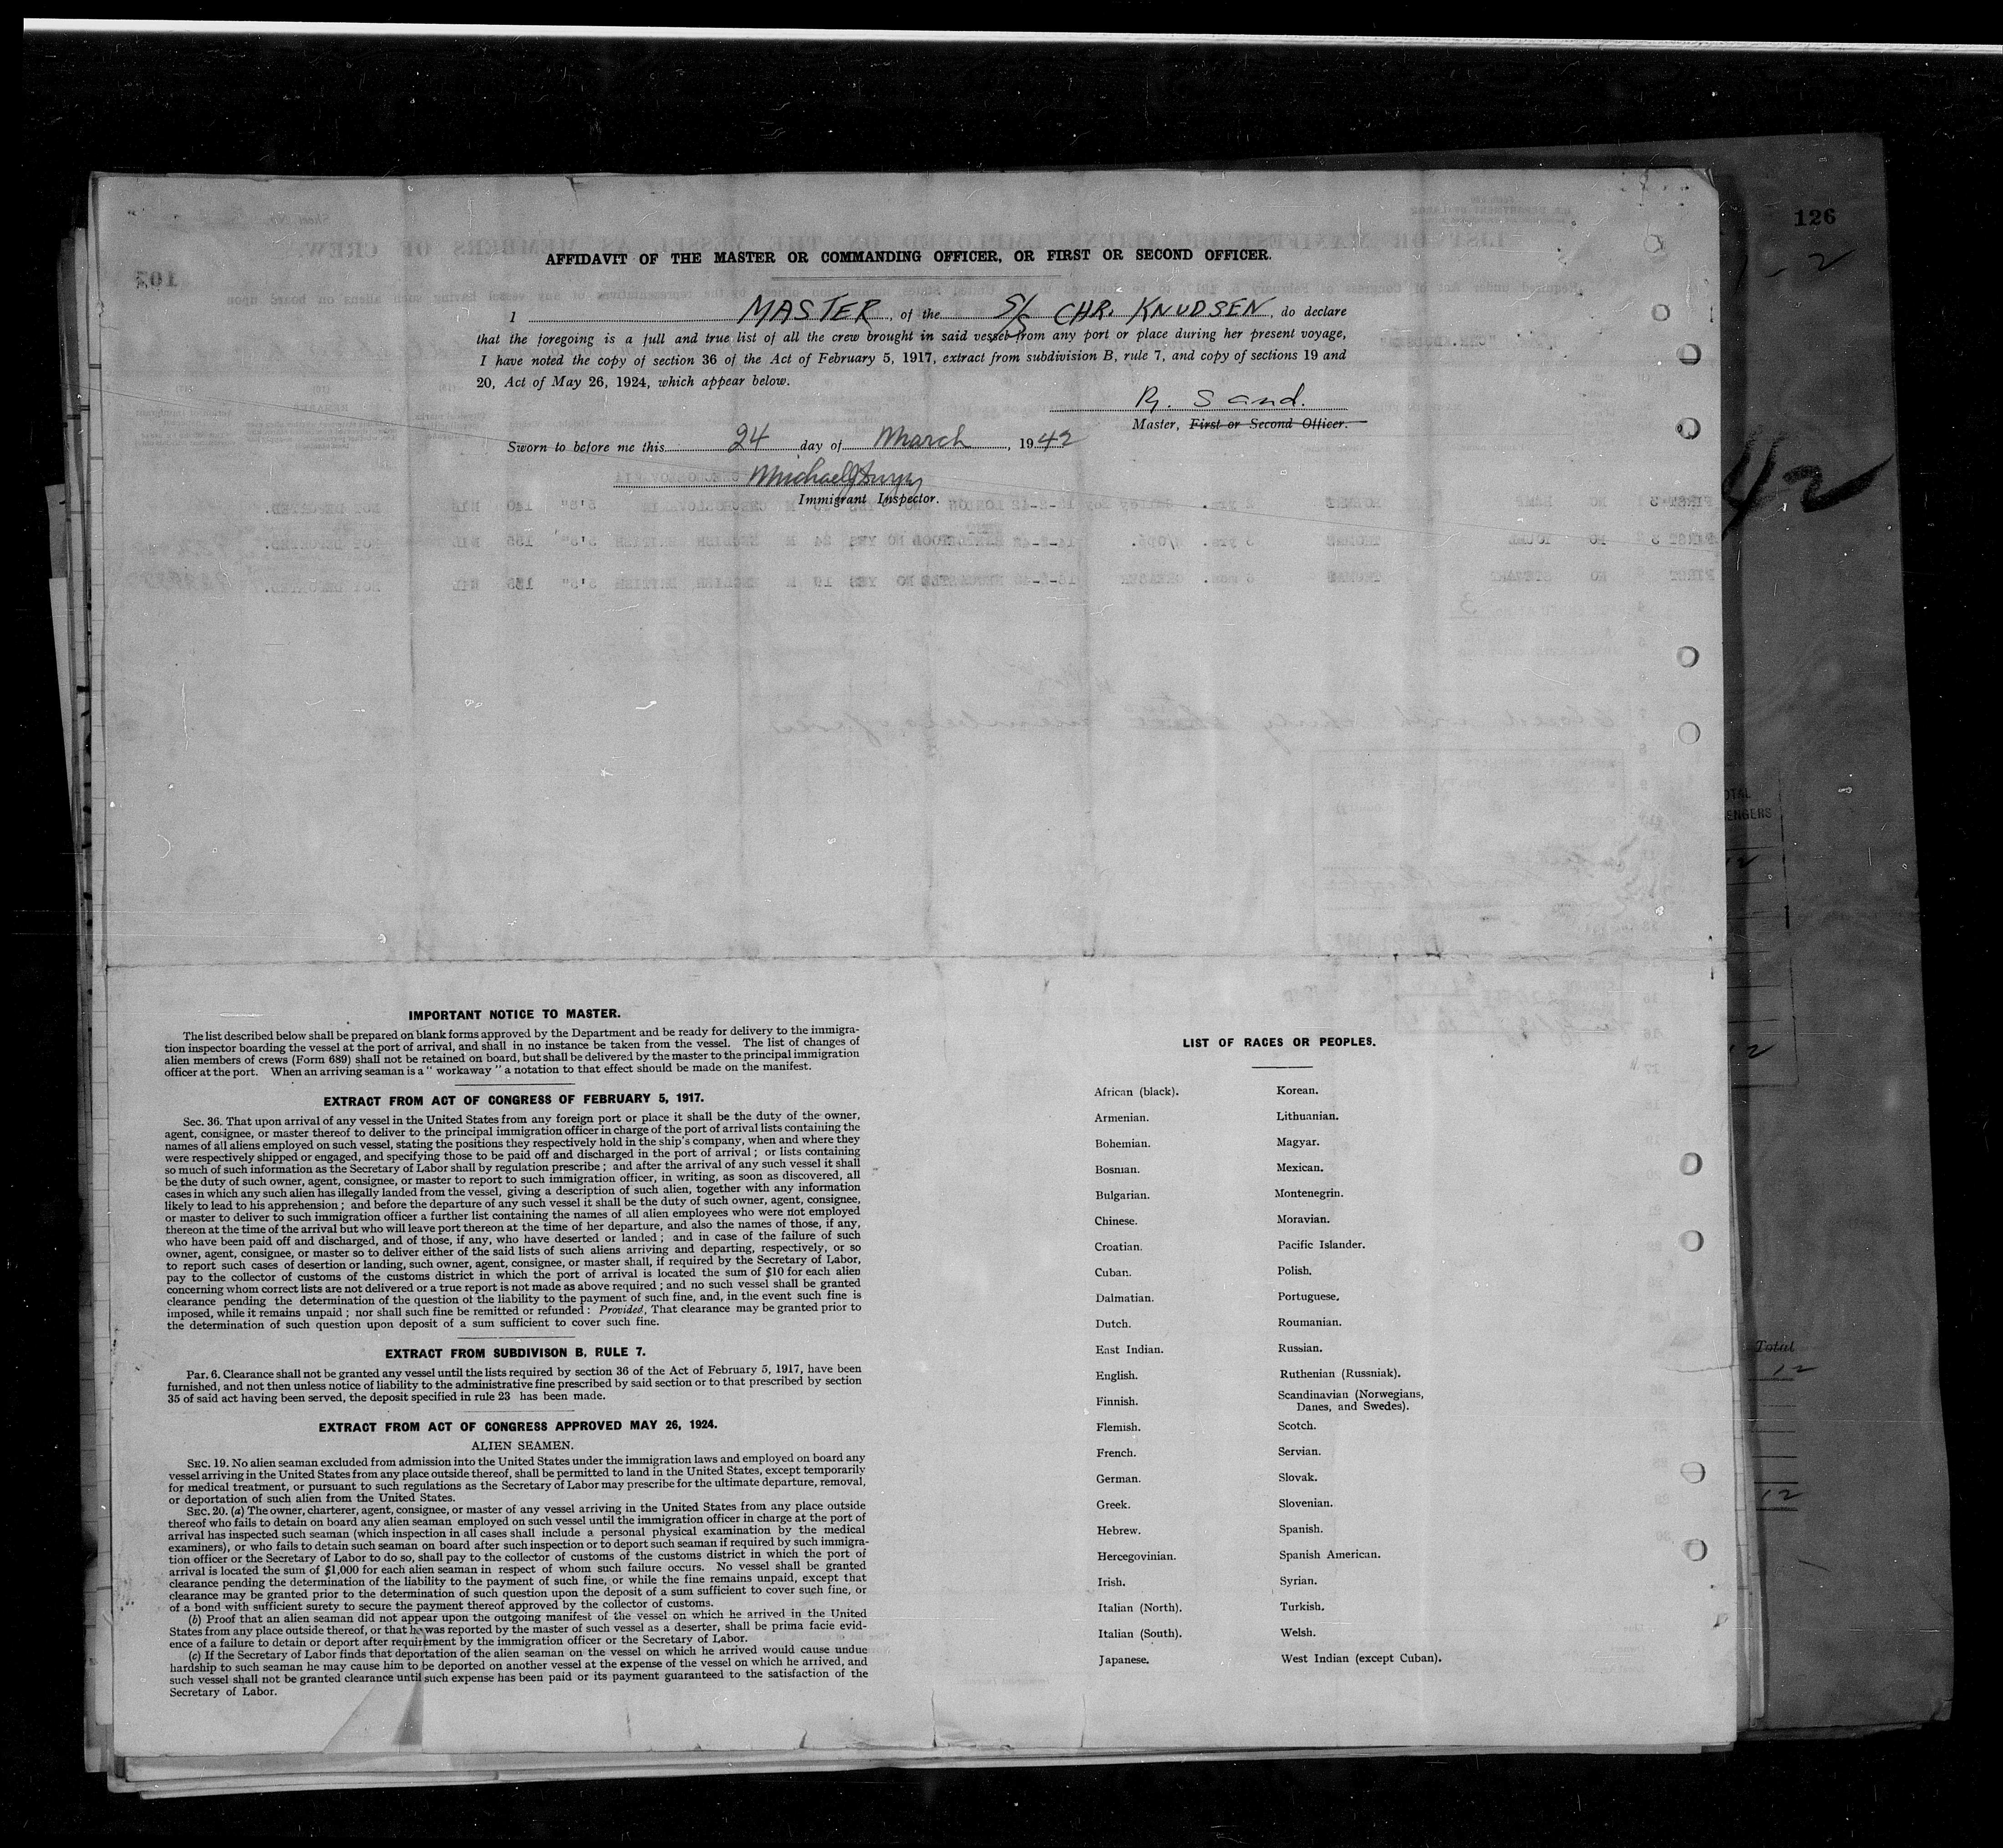 126
AFFIDAVIT OF THE MASTER OR COMMANDING OFFICER, OR FIRST OR SECOND OFFICER.
I MASTER, of the S/S CHR. KNUDSEN, do declare
that the foregoing is a full and true list of all the crew brought in said vessel from any port or place during her present voyage,
I have noted the copy of section 36 of the Act of February 5, 1917, extract from subdivision B, rule 7, and copy of sections 19 and
20, Act of May 26, 1924, which appear below.
Sand.
Master, First or Second Officer.
Sworn to before me this 24 day of March, 1942
Michael
Immigrant Inspector.
42
IMPORTANT NOTICE TO MASTER.
The list described below shall be prepared on blank forms approved by the Department and be ready for delivery to the immigra-
tion inspector boarding the vessel at the port of arrival, and shall in no instance be taken from the vessel. The list of changes of
alien members of crews (Form 689) shall not be retained on board, but shall be delivered by the master to the principal immigration
officer at the port. When an arriving seaman is a " workaway " a notation to that effect should be made on the manifest.
EXTRACT FROM ACT OF CONGRESS OF FEBRUARY 5, 1917.
Sec. 36. That upon arrival of any vessel in the United States from any foreign port or place it shall be the duty of the owner,
agent, consignee, or master thereof to deliver to the principal immigration officer in charge of the port of arrival lists containing the
names of all aliens employed on such vessel, stating the positions they respectively hold in the ship's company, when and where they
were respectively shipped or engaged, and specifying those to be paid off and discharged in the port of arrival ; or lists containing
so much of such information as the Secretary of Labor shall by regulation prescribe ; and after the arrival of any such vessel it shall
be the duty of such owner, agent, consignee, or master to report to such immigration officer, in writing, as soon as discovered, all
cases in which any such alien has illegally landed from the vessel, giving a description of such alien, together with any information
likely to lead to his apprehension ; and before the departure of any such vessel it shall be the duty of such owner, agent, consignee,
or master to deliver to such immigration officer a further list containing the names of all alien employees who were not employed
thereon at the time of the arrival but who will leave port thereon at the time of her departure, and also the names of those, if any,
who have been paid off and discharged, and of those, if any, who have deserted or landed ; and in case of the failure of such
owner, agent, consignee, or master so to deliver either of the said lists of such aliens arriving and departing, respectively, or so
to report such cases of desertion or landing, such owner, agent, consignee, or master shall, if required by the Secretary of Labor,
pay to the collector of customs of the customs district in which the port of arrival is located the sum of $10 for each alien
concerning whom correct lists are not delivered or a true report is not made as above required ; and no such vessel shall be granted
clearance pending the determination of the question of the liability to the payment of such fine, and, in the event such fine is
imposed, while it remains unpaid ; nor shall such fine be remitted or refunded : Provided, That clearance may be granted prior to
the determination of such question upon deposit of a sum sufficient to cover such fine.
EXTRACT FROM SUBDIVISON B, RULE 7.
Par. 6. Clearance shall not be granted any vessel until the lists required by section 36 of the Act of February 5, 1917, have been
furnished, and not then unless notice of liability to the administrative fine prescribed by said section or to that prescribed by section
35 of said act having been served, the deposit specified in rule 23 has been made.
EXTRACT FROM ACT OF CONGRESS APPROVED MAY 26, 1924.
ALIEN SEAMEN.
SEC. 19. No alien seaman excluded from admission into the United States under the immigration laws and employed on board any
vessel arriving in the United States from any place outside thereof, shall be permitted to land in the United States, except temporarily
for medical treatment, or pursuant to such regulations as the Secretary of Labor may prescribe for the ultimate departure, removal,
or deportation of such alien from the United States.
SEC. 20. (a) The owner, charterer, agent, consignee, or master of any vessel arriving in the United States from any place outside
thereof who fails to detain on board any alien seaman employed on such vessel until the immigration officer in charge at the port of
arrival has inspected such seaman (which inspection in all cases shall include a personal physical examination by the medical
examiners), or who fails to detain such seaman on board after such inspection or to deport such seaman if required by such immigra-
tion officer or the Secretary of Labor to do so, shall pay to the collector of customs of the customs district in which the port of
arrival is located the sum of $1,000 for each alien seaman in respect of whom such failure occurs. No vessel shall be granted
clearance pending the determination of the liability to the payment of such fine, or while the fine remains unpaid, except that
clearance may be granted prior to the determination of such question upon the deposit of a sum sufficient to cover such fine, or
of a bond with sufficient surety to secure the payment thereof approved by the collector of customs.
(b) Proof that an alien seaman did not appear upon the outgoing manifest of the vessel on which he arrived in the United
States from any place outside thereof, or that he was reported by the master of such vessel as a deserter, shall be prima facie evid-
ence of a failure to detain or deport after requirement by the immigration officer or the Secretary of Labor.
(c) If the Secretary of Labor finds that deportation of the alien seaman on the vessel on which he arrived would cause undue
hardship to such seaman he may cause him to be deported on another vessel at the expense of the vessel on which he arrived, and
such vessel shall not be granted clearance until such expense has been paid or its payment guaranteed to the satisfaction of the
Secretary of Labor.
LIST OF RACES OR PEOPLES.
African (black). Korean.
Armenian. Lithuanian.
Bohemian. Magyar.
Bosnian. Mexican.
Bulgarian. Montenegrin.
Chinese. Moravian.
Croatian. Pacific Islander.
Cuban. Polish.
Dalmatian. Portuguese.
Dutch. Roumanian.
East Indian. Russian.
English. Ruthenian (Russniak).
Finnish. Scandinavian (Norwegians,
Danes, and Swedes).
Flemish. Scotch.
French. Servian.
German. Slovak.
Greek. Slovenian.
Hebrew. Spanish.
Hercegovinian. Spanish American.
Irish. Syrian.
Italian (North). Turkish.
Italian (South). Welsh.
Japanese. West Indian (except Cuban).
Total
12
12